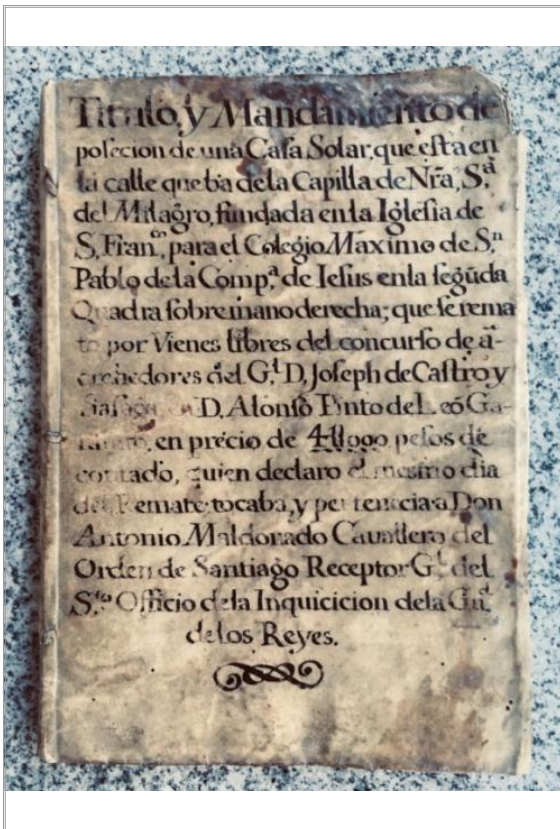 Titulo, y Mandamiento de
posecion de una Casa Solar, que està en
la calle que ba de la Capilla de Nrã, S.ª
del Milagro, fundada en la Iglesia de
S, Fran.co, para el Colegio Maximo de S.n
Pablo de la Comp.ª de Iesus en la segũda
Quadra sobre mano derecha; que se rema
to por Vienes libres del concurso de a-
crehedores del G.l D, Joseph de Castro y
en D. Alonso Pinto de Leõ Ga-
en précio de pesos de
contado, quien declaro el mesmo dia
del Remate tocaba, y pertenecia a Don
Antonio Maldonado Cavallero del
Orden de Santiago Receptor G.l del
S.to Officio de la Inquicicion de la
de los Reyes.